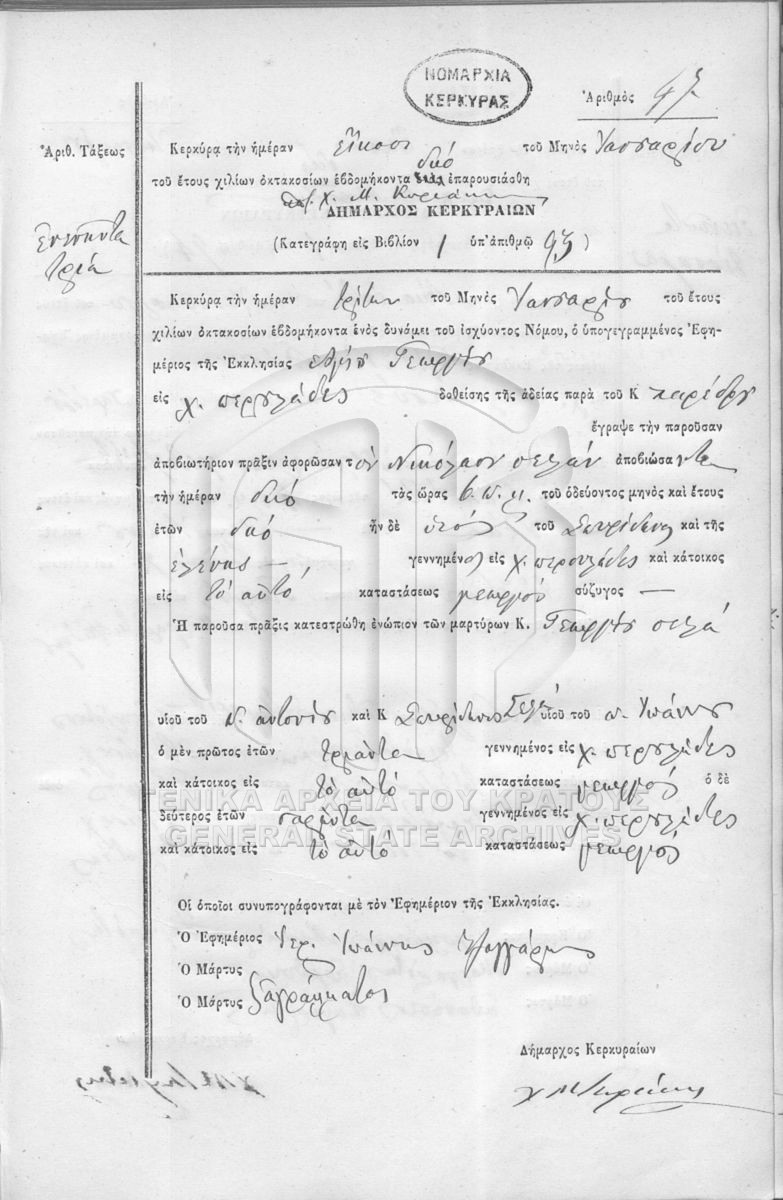 ΝΟΜΑΡΧΙΑ
ΚΕΡΚΥΡΑΣ
Ἀριθμὸς
Ἀριθ. Τάξεως
Ἐνενῆντα
τρία
Κερκύρᾳ τὴν ἡμέραν εἴκοσι δυό τοῦ Μηνὸς Ἰανουαρίου
τοῦ ἔτους χιλίων ὀκτακοσίων ἑβδομήκοντα ἐπαρουσιάσθη
Χ. Μ.
ΔΗΜΑΡΧΟΣ ΚΕΡΚΥΡΑΙΩΝ
(Κατεγράφη εἰς Βιβλίον 1 ὑπ' ἀριθμῷ 93)
Κερκύρᾳ τὴν ἡμέραν τρίτην τοῦ Μηνὸς Ἰανουαρίου τοῦ ἔτους
χιλίων ὀκτακοσίων ἑβδομήκοντα ἑνὸς δυνάμει τοῦ ἰσχύοντος Νόμου, ὁ ὑπογεγραμμένος Ἐφη-
μέριος τῆς Ἐκκλησίας Ἁγίου Γεωργίου
εἰς χ. περουλάδες δοθείσης τῆς ἀδείας παρὰ τοῦ Κ παρέδρου
ἔγραψε τὴν παροῦσαν
ἀποβιωτήριον πρᾶξιν ἀφορῶσαν τὸν Νικόλαον σελάν ἀποβιώσαντα
τὴν ἡμέραν δυό τὰς ὥρας 6. π. μ. τοῦ ὁδεύοντος μηνὸς καὶ ἔτους
ἐτῶν δυό ἦν δὲ υἱός τοῦ Σπυρίδωνος καὶ τῆς
ἑλένης — γεννημένος εἰς χ. περουλάδες καὶ κάτοικος
εἰς τὸ αὐτό καταστάσεως γεωργού σύζυγος —
Ἡ παροῦσα πρᾶξις κατεστρώθη ἐνώπιον τῶν μαρτύρων Κ. Γεωργίου σελά
υἱοῦ τοῦ π. ἀντωνίου καὶ Κ Σπυρίδωνος Σελά υἱοῦ τοῦ π. Ἰωάννου
ὁ μὲν πρῶτος ἐτῶν τριάντα γεννημένος εἰς χ. περουλάδες
καὶ κάτοικος εἰς τὸ αὐτό καταστάσεως γεωργός ὁ δὲ
δεύτερος ἐτῶν σαράντα γεννημένος εἰς χ. περουλάδες
καὶ κάτοικος εἰς τὸ αὐτό καταστάσεως γεωργός
ΓΕΝΙΚΑ ΑΡΧΕΙΑ ΤΟΥ ΚΡΑΤΟΥΣ
GENERAL STATE ARCHIVES
Οἱ ὁποῖοι συνυπογράφονται μὲ τὸν Ἐφημέριον τῆς Ἐκκλησίας.
Ὁ Ἐφημέριος Ἱερ. Ἰωάννης
Ὁ Μάρτυς
Ὁ Μάρτυς ἀγράμματος
Δήμαρχος Κερκυραίων